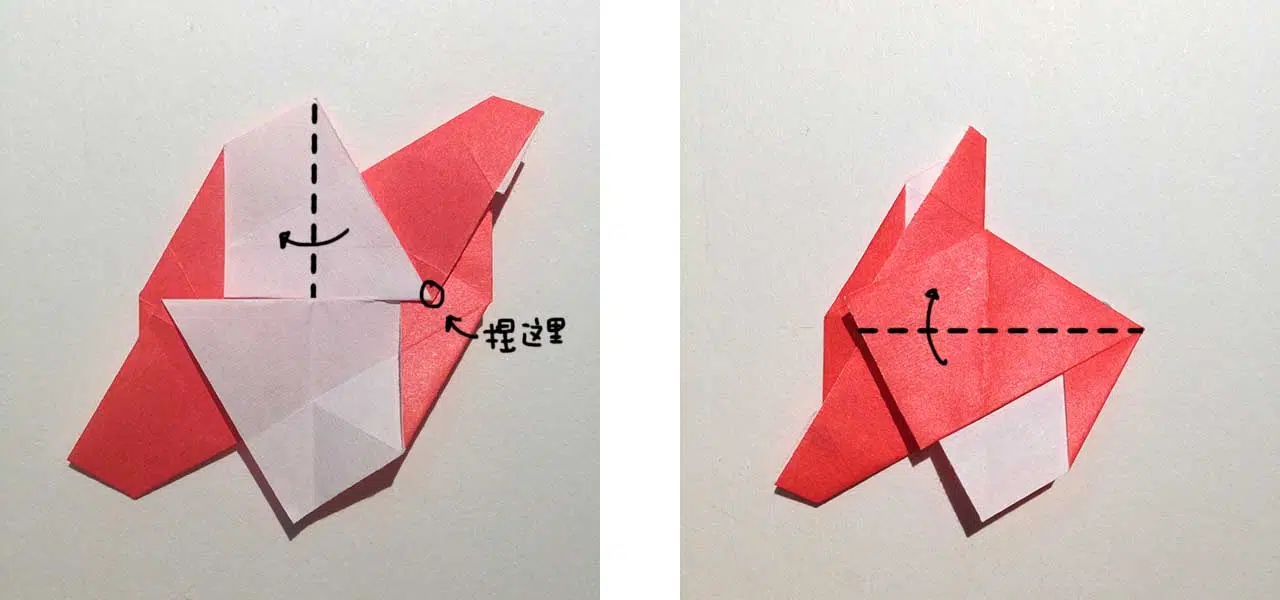 捏这里